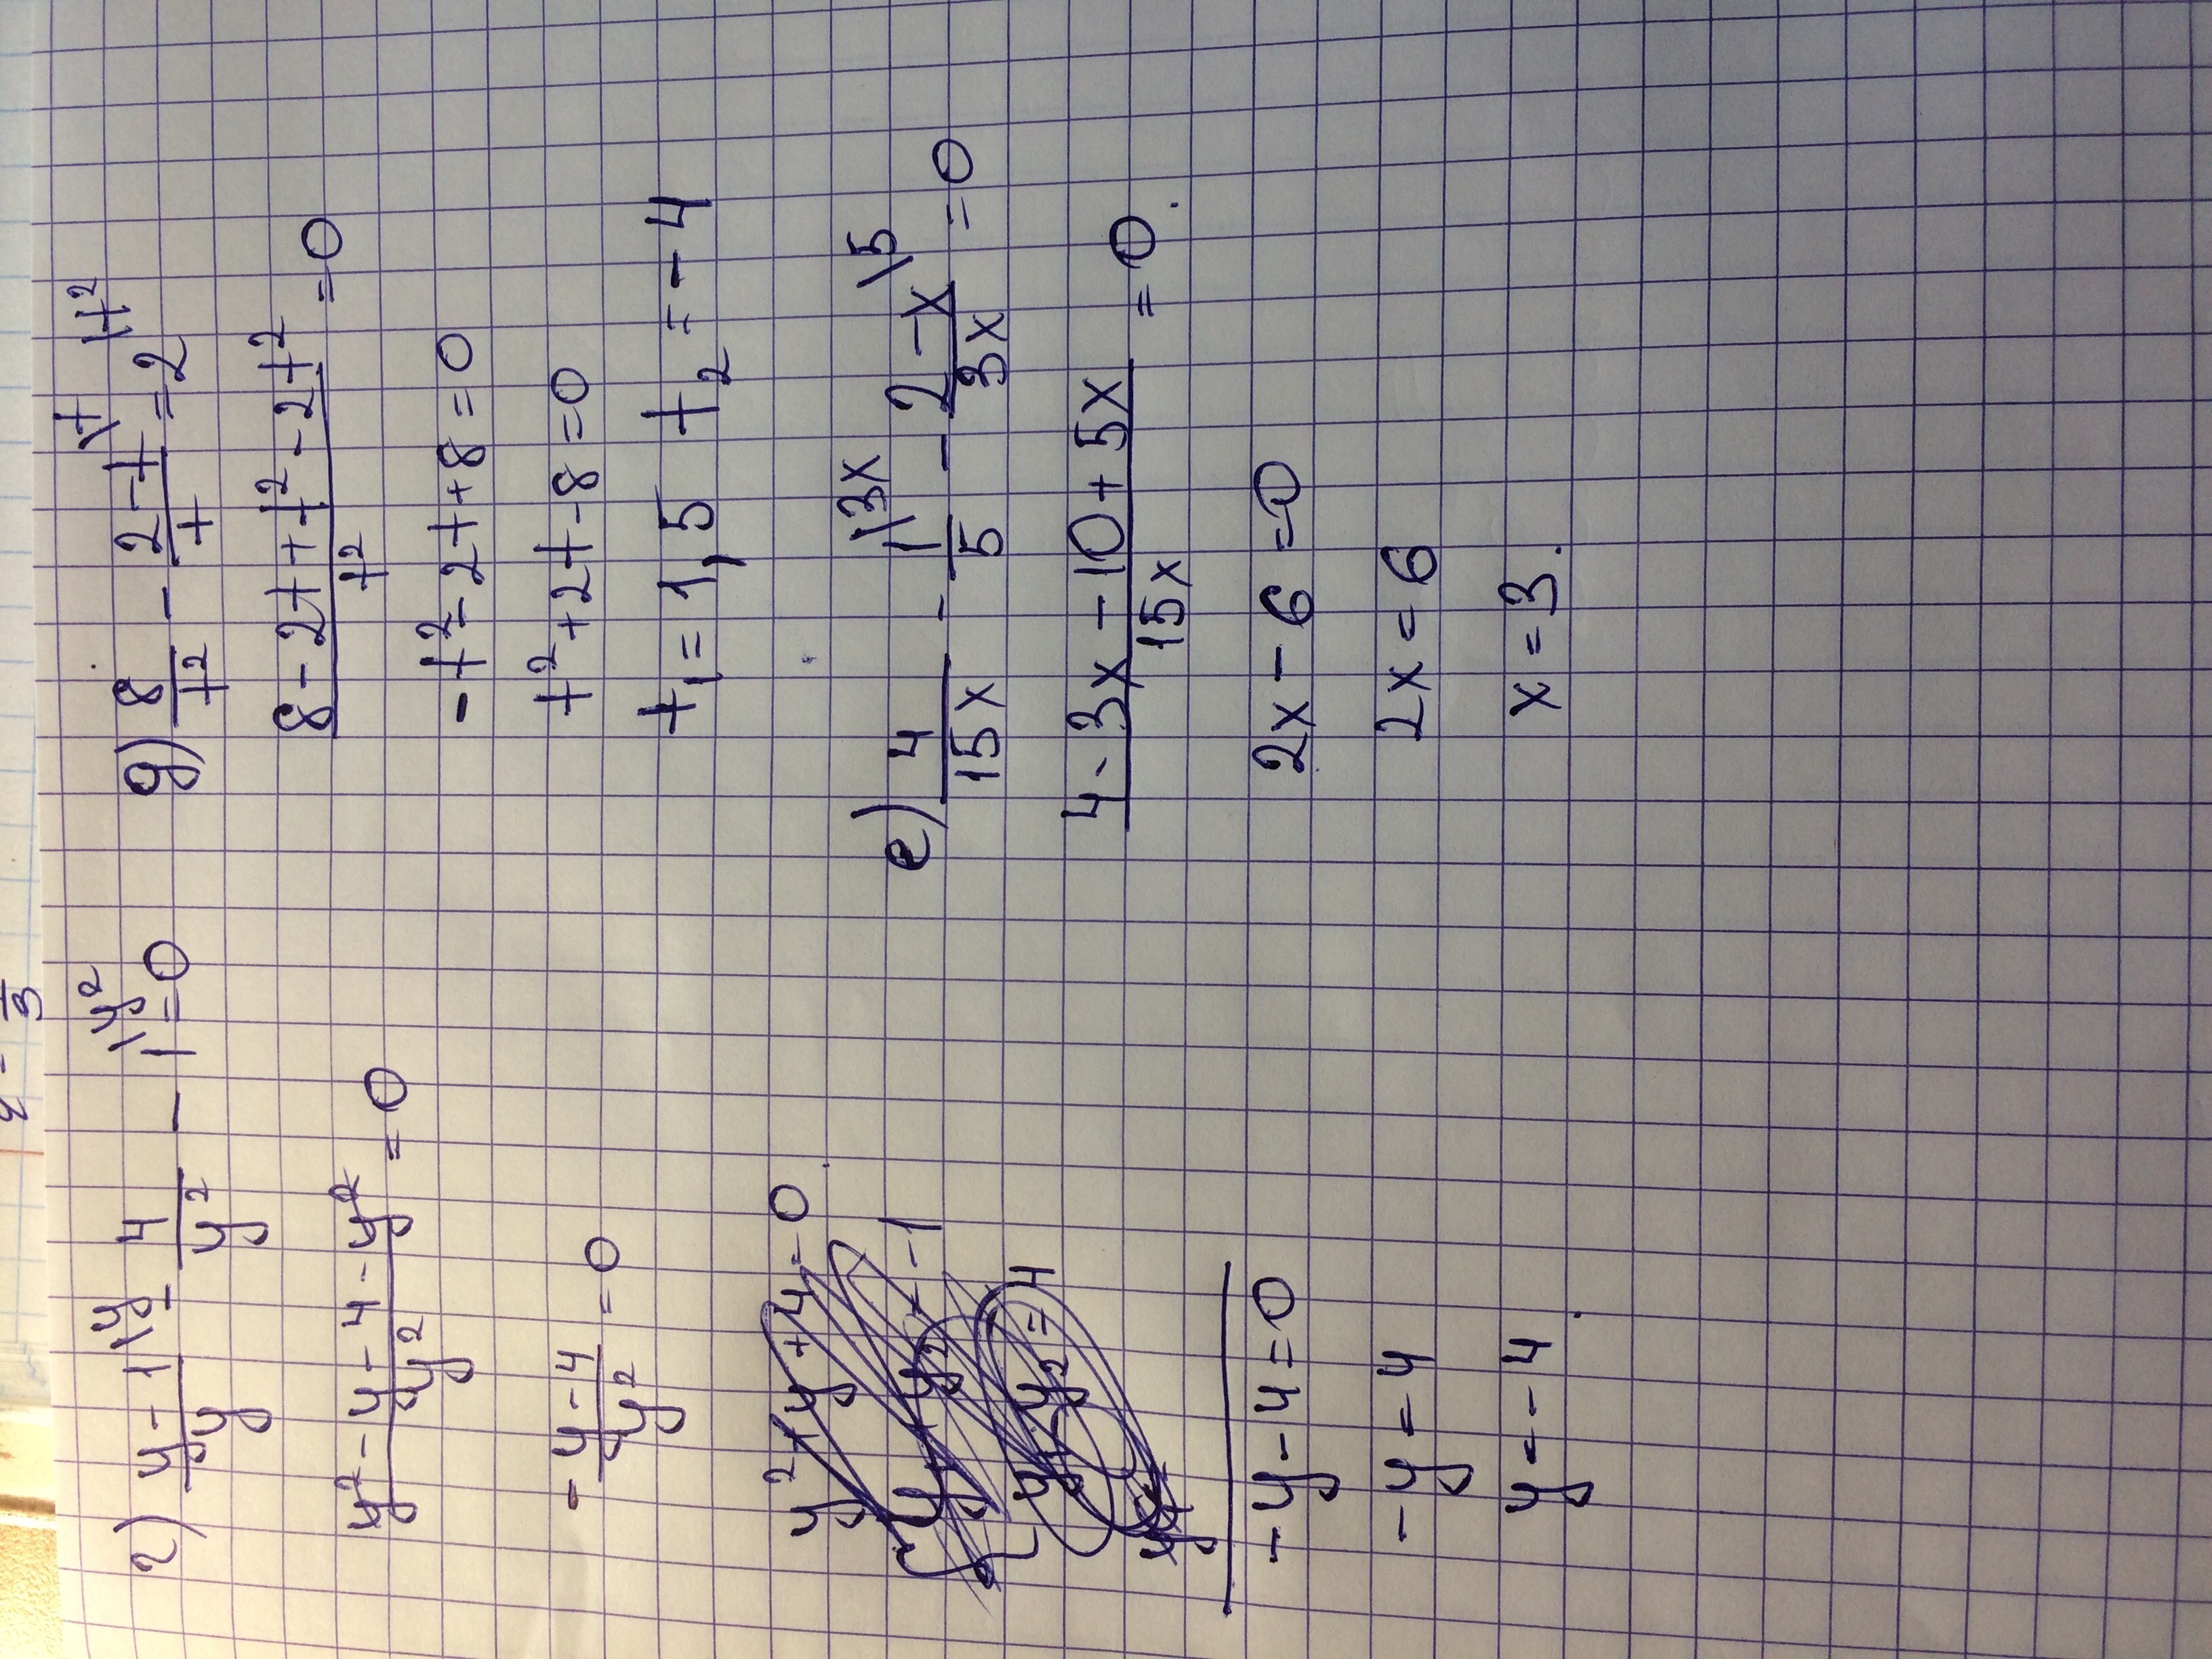 г) \frac{y-1}{y}^{\y} - \frac{4}{y²} - 1^{\y²} = 0
\frac{y² - y - 4 - y²}{y²} = 0
\frac{-y-4}{y²} = 0
y² + y + 4 = 0
-y-4=0
-y=4
y=-4
д) \frac{8}{t²} - \frac{2-t}{t}^{\t} = 2^{\t²}
\frac{8-2t+t²-2t²}{t²} = 0
-t²-2t+8=0
t²+2t-8=0
t₁=1,5 t₂=-4
е) \frac{4}{15x} - \frac{1}{5}^{\3x} - \frac{2-x}{3x}^{\5} = 0
\frac{4-3x-10+5x}{15x} = 0
2x-6=0
2x=6
x=3.